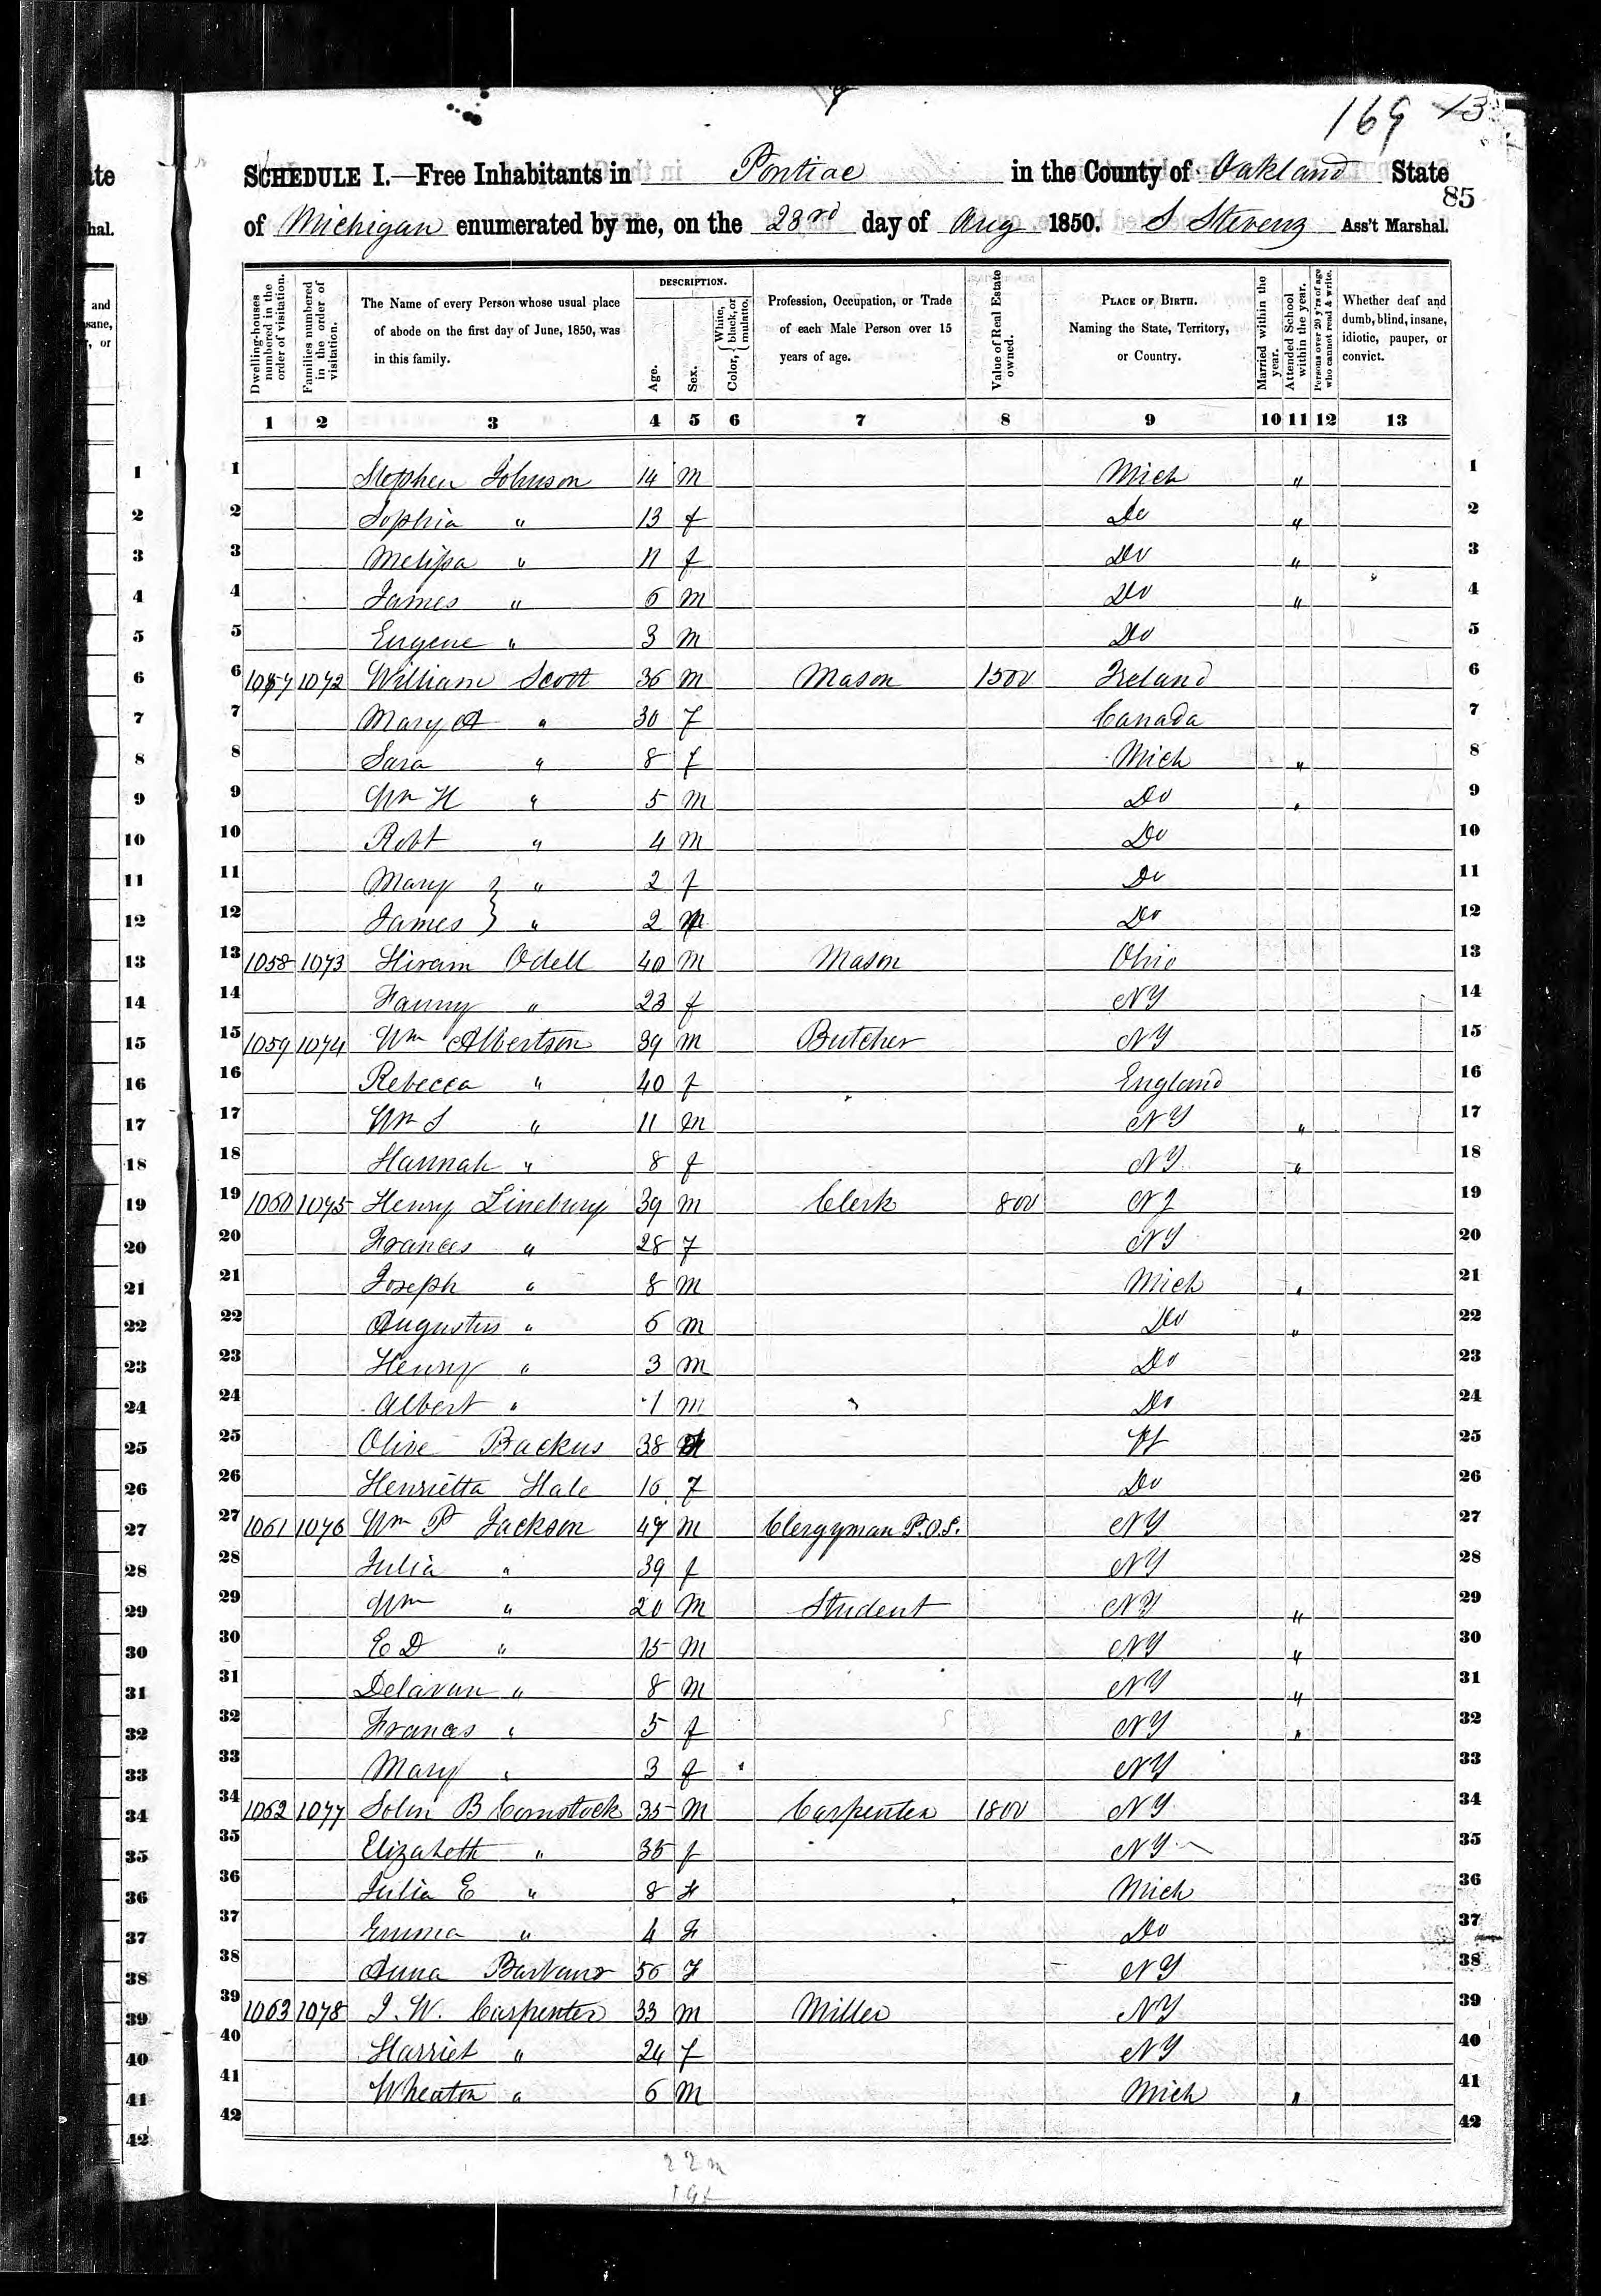 169 13
SCHEDULE I.—Free Inhabitants in Pontiac in the County of Oakland State
85
of Michigan enumerated by me, on the 23rd day of Aug 1850. S Stevens Ass't Marshal.
Dwelling-houses numbered in the order of visitation.
Families numbered in the order of visitation.
The Name of every Person whose usual place of abode on the first day of June, 1850, was in this family.
DESCRIPTION.
Age.
Sex.
Color, { White, black, or mulatto.
Profession, Occupation, or Trade of each Male Person over 15 years of age.
Value of Real Estate owned.
PLACE OF BIRTH. Naming the State, Territory, or Country.
Married within the year.
Attended School within the year.
Persons over 20 y'rs of age who cannot read & write.
Whether deaf and dumb, blind, insane, idiotic, pauper, or convict.
1 2 3 4 5 6 7 8 9 10 11 12 13
1 Stephen Johnson 14 m Mich " 1
2 Sophia " 13 f Do " 2
3 Melissa " 11 f Do " 3
4 James " 6 m Do " 4
5 Eugene " 3 m Do 5
6 1057 1072 William Scott 36 m Mason 1500 Ireland 6
7 Mary A " 30 f Canada 7
8 Sara " 8 f Mich " 8
9 Wm H " 5 m Do " 9
10 Robt " 4 m Do 10
11 Mary } " 2 f Do 11
12 James } " 2 m Do 12
13 1058 1073 Hiram Odell 40 m Mason Ohio 13
14 Fanny " 23 f NY 14
15 1059 1074 Wm Albertson 39 m Butcher NY 15
16 Rebecca " 40 f England 16
17 Wm S " 11 m NY " 17
18 Hannah " 8 f NY " 18
19 1060 1075 Henry Linebury 39 m Clerk 800 NJ 19
20 Frances " 28 f NY 20
21 Joseph " 8 m Mich " 21
22 Augustus " 6 m Do " 22
23 Henry " 3 m Do 23
24 Albert " 1 m Do 24
25 Olive Backus 38 Vt 25
26 Henrietta Hale 16 f Do 26
27 1061 1076 Wm P Jackson 47 m Clergyman P.O.S. NY 27
28 Julia " 39 f NY 28
29 Wm " 20 m Student NY " 29
30 E D " 15 m NY " 30
31 Delavan " 8 m NY " 31
32 Frances " 5 f NY " 32
33 Mary " 3 f NY 33
34 1062 1077 Solon B Comstock 35 m Carpenter 1800 NY 34
35 Elizabeth " 35 f NY 35
36 Julia E " 8 f Mich 36
37 Emma " 4 f Do 37
38 Anna 56 f NY 38
39 1063 1078 J. W. Carpenter 33 m Miller NY 39
40 Harriet " 24 f NY 40
41 Wheaton " 6 m Mich " 41
42 42
22 m
19 f